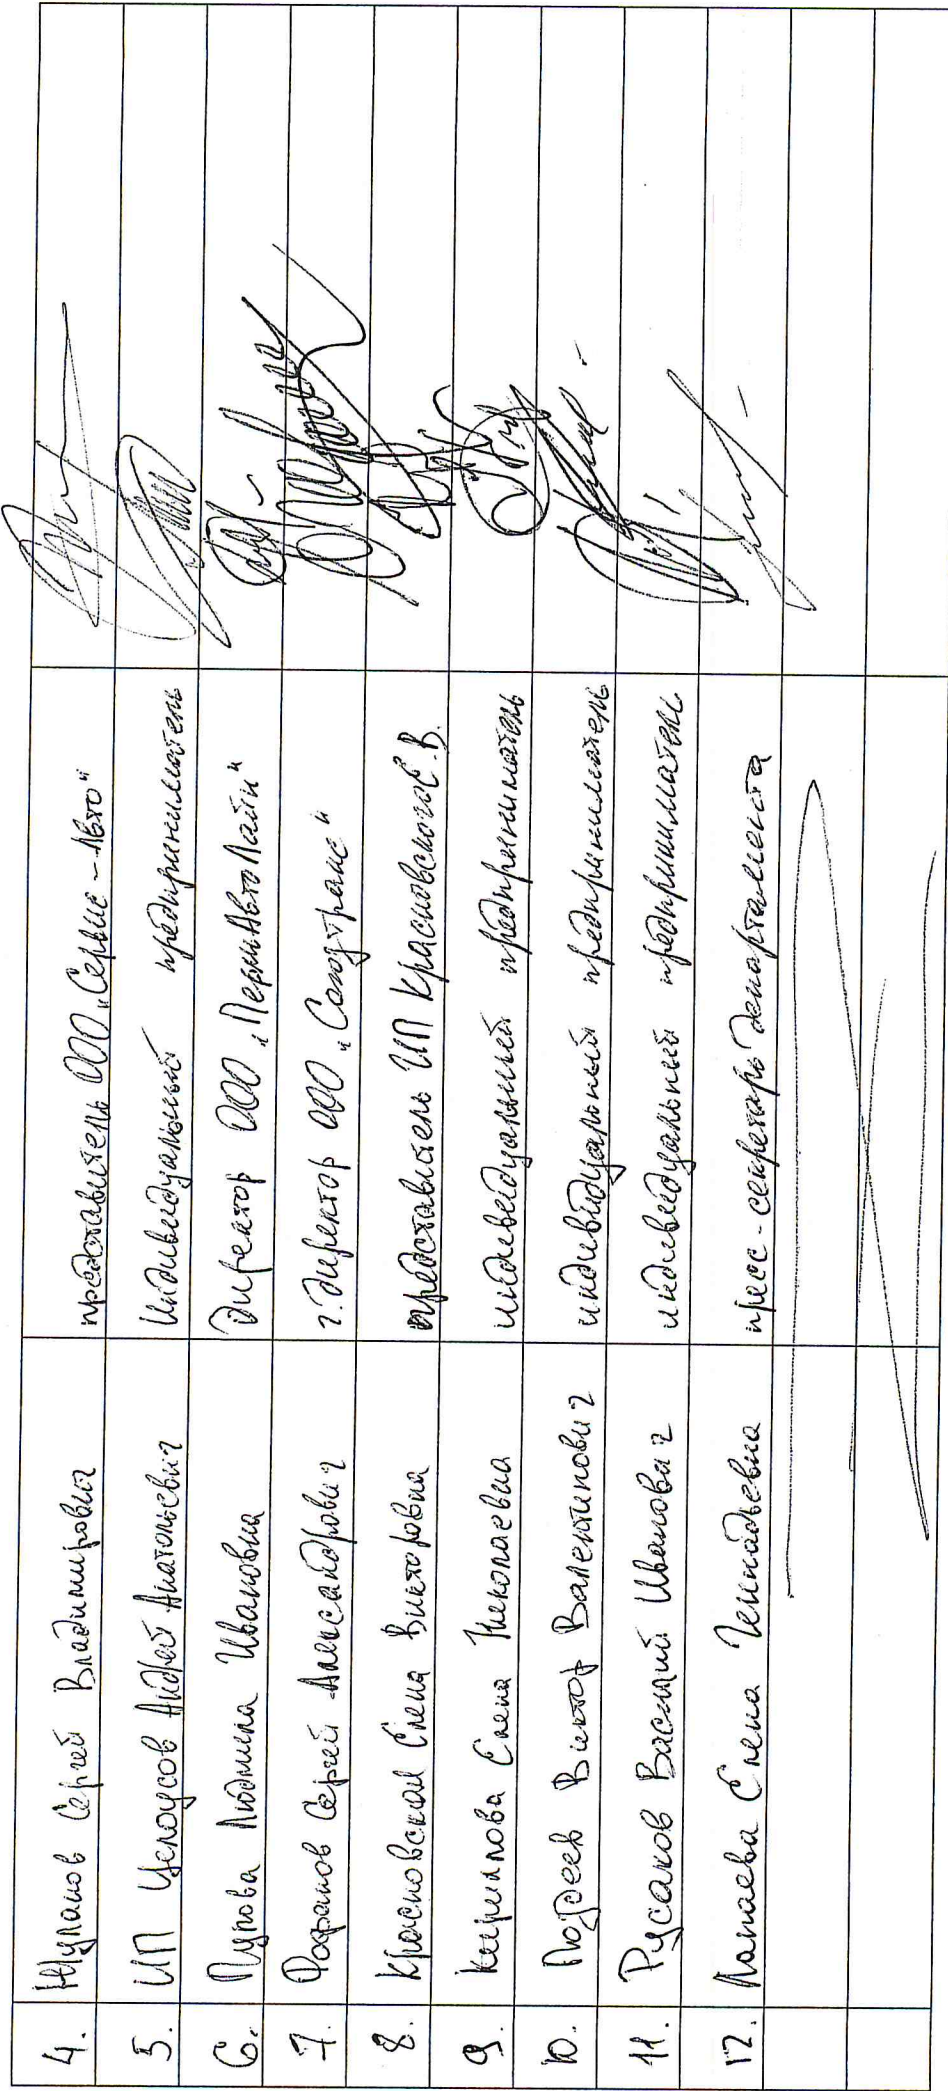 4. Жуланов Сергей Владимирович представитель ООО „Сервис-Авто"
5. ИП Целоусов Андрей Анатольевич Индивидуальный предприниматель
6. Пурова Людмила Ивановна Директор ООО „ПермАвтоЛайн"
7. Фофанов Сергей Александрович г.директор ООО „Союзтранс"
8. Красновская Елена Викторовна представитель ИП Красновского С.В.
9. Кириллова Елена Николаевна индивидуальный предприниматель
10. Поздеев Виктор Валентинович индивидуальный предприниматель
11. Русаков Василий Иванович индивидуальный предприниматель
12. Лопаева Елена Геннадьевна пресс-секретарь департамента